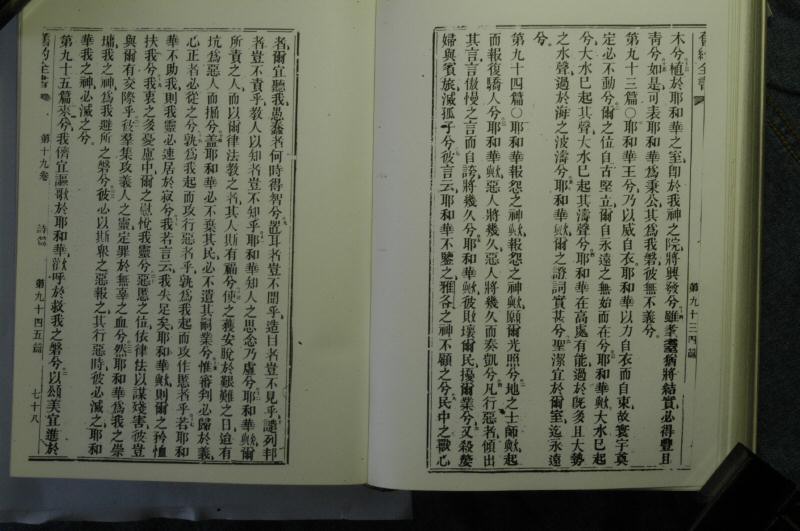 舊約全書
第九十三四篇
木兮植於耶和華之室卽於我神之院將興發兮雖耄耋病將結實必得豐且
靑兮如是可表耶和華爲秉公其爲我磐彼無不義兮
第九十三篇○耶和華王兮乃以威自衣耶和華以力自衣而自束故寰宇奠
定必不動兮爾之位自古堅立爾自永遠之無始而在兮耶和華歟大水已起
兮大水已起其聲大水已起其濤聲兮耶和華在高處有能過於旣多且大勢
之水聲過於海之波濤兮耶和華歟爾之證詞實甚兮聖潔宜於爾室迄永遠
兮
第九十四篇○耶和華報怨之神歟報怨之神歟願爾光照兮地之士師歟起
而報復驕人兮耶和華歟惡人將幾久惡人將幾久而奏凱兮凡行惡者傾出
其言言傲慢之言而自誇將幾久兮耶和華歟彼則壞爾民擾爾業兮又殺嫠
婦與賓旅滅孤子兮彼言云耶和華不鑒之雅各之神不顧之兮民中之獸心
者爾宜聽我愚蠢者何時得智兮置耳者豈不聞乎造目者豈不見乎譴列邦
者豈不責乎敎人以知者豈不知乎耶和華知人之思念乃虛兮耶和華歟爾
所責之人而以爾律法敎之者其人斯有福兮使之獲安脫於艱難之日迨有
坑爲惡人而掘兮蓋耶和華必不棄其民必不遺其嗣業兮惟審判必歸於義
心正者必從之兮孰爲我起而攻行惡者乎孰爲我起而攻作慝者乎若耶和
華不助我則我靈必速居於寂兮我若言云我失足矣耶和華歟則爾之矜恤
扶我兮我衷之多憂慮中爾之慰悅我靈兮惡慝之位依律法以謀殘害彼豈
與爾有交際乎彼羣集攻義人之靈定罪於無辜之血兮然耶和華爲我之崇
墉我之神爲我避所之磐兮彼必以斯衆之惡報之其行惡時彼必滅之耶和
華我之神必滅之兮
第九十五篇來兮我儕宜謳歌於耶和華歡呼於救我之磐兮以頌美宜進於
舊約全書
第十九卷
詩篇
第九十四五篇
七十八